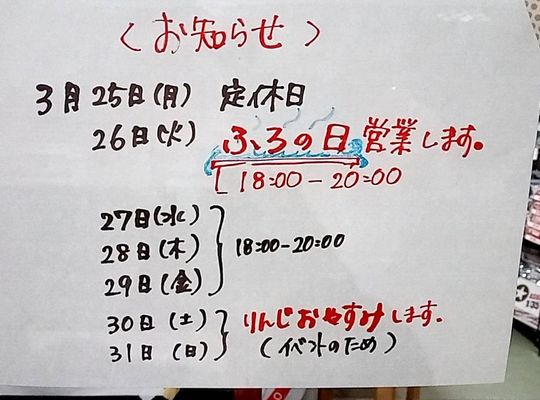 〈お知らせ〉
3月25日(月) 定休日
26日(火) ふろの日営業します。
18:00-20:00
27日(水)
28日(木) 18:00-20:00
29日(金)
30日(土) りんじおやすみします。
31日(日) (イベントのため)